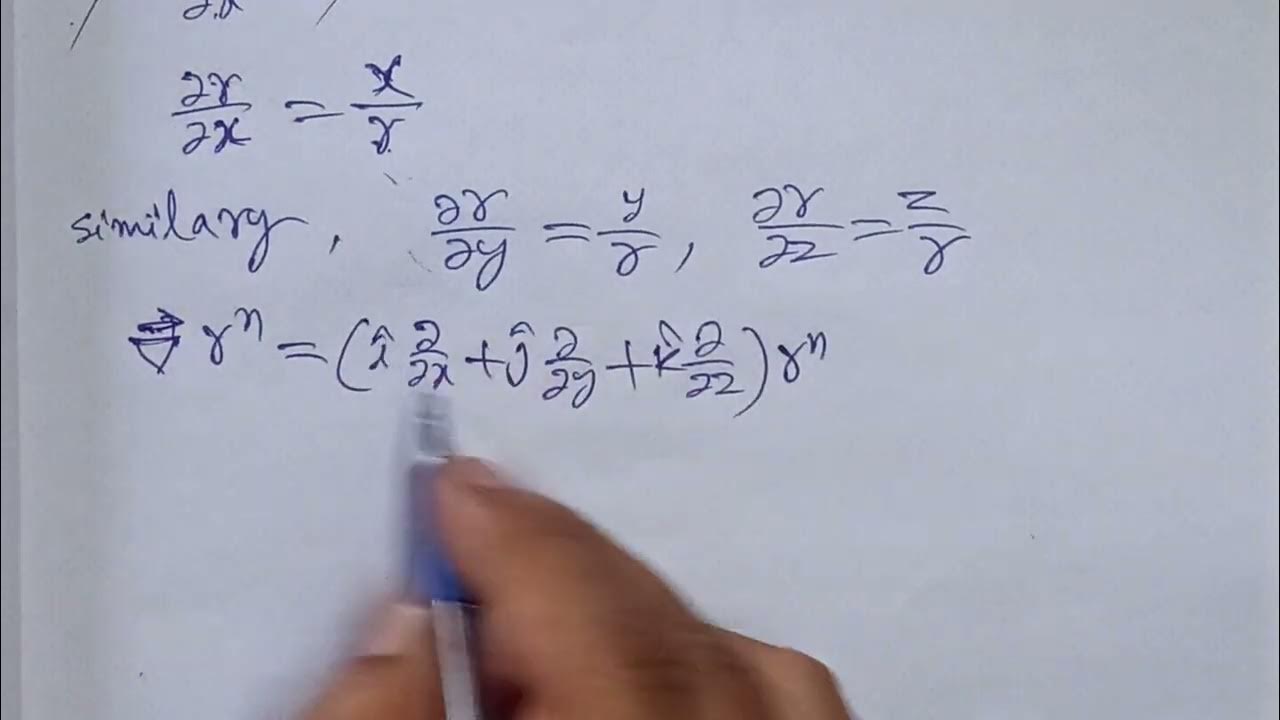 ∂r/∂x = x/r
similary, ∂r/∂y = y/r, ∂r/∂z = z/r
∇⃗ rⁿ = (î ∂/∂x + ĵ ∂/∂y + k̂ ∂/∂z) rⁿ